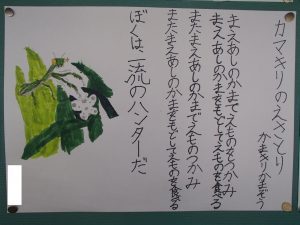 カマキリのえさとり
かまきりかまぞう
まえあしのかまでえものをつかみ
まえあしのかまをもどしてえものを食べる
またまえあしのかまでえものつかみ
またまえあしのかまをもどしてえものを食べる
ぼくは、一流のハンターだ